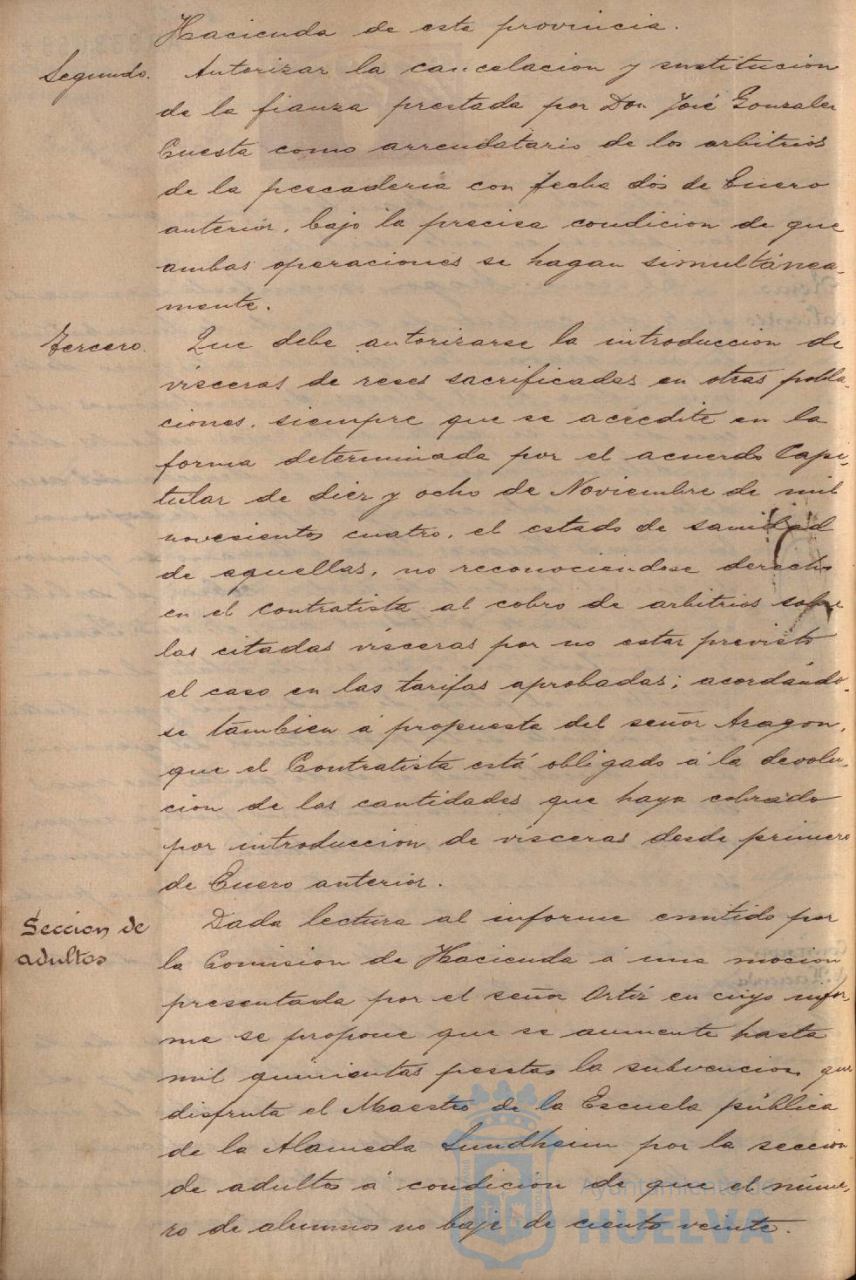 Hacienda de este provincia.
Segundo. Autorizar la cancelacion y sustitucion
de la fianza prestada por Don José Gonzalez
Cuesta como arrendatario de los arbitrios
de la pescaderia con fecha dos de Enero
anterior, bajo la precisa condicion de que
ambas operaciones se hagan simultánea-
mente.
Tercero. Que debe autorizarse la introduccion de
visceras de reses sacrificadas en otras pobla-
ciones, siempre que se acredite en la
forma determinada por el acuerdo Capi-
tular de diez y ocho de Noviembre de mil
novesientos cuatro, el estado de sanidad
de aquellas, no reconociendose derecho
en el contratista al cobro de arbitrios sobre
las citadas vísceras por no estar previsto
el caso en las tarifas aprobadas; acordándo-
se tambien á propuesta del señor Aragon,
que el Contratista está obligado á la devolu-
cion de las cantidades que haya cobrado
por introduccion de vísceras desde primero
de Enero anterior.
Seccion de
adultos
Dada lectura al informe emitido por
la Comision de Hacienda á una mocion
presentada por el señor Ortiz en cuyo infor-
me se propone que se aumente hasta
mil quinientas pesetas la subvencion que
disfruta el Maestro de la Escuela pública
de la Alameda Sundheim por la seccion
de adultos á condicion de que el núme-
ro de alumnos no baje de ciento veinte.
Ayuntamiento de
HUELVA